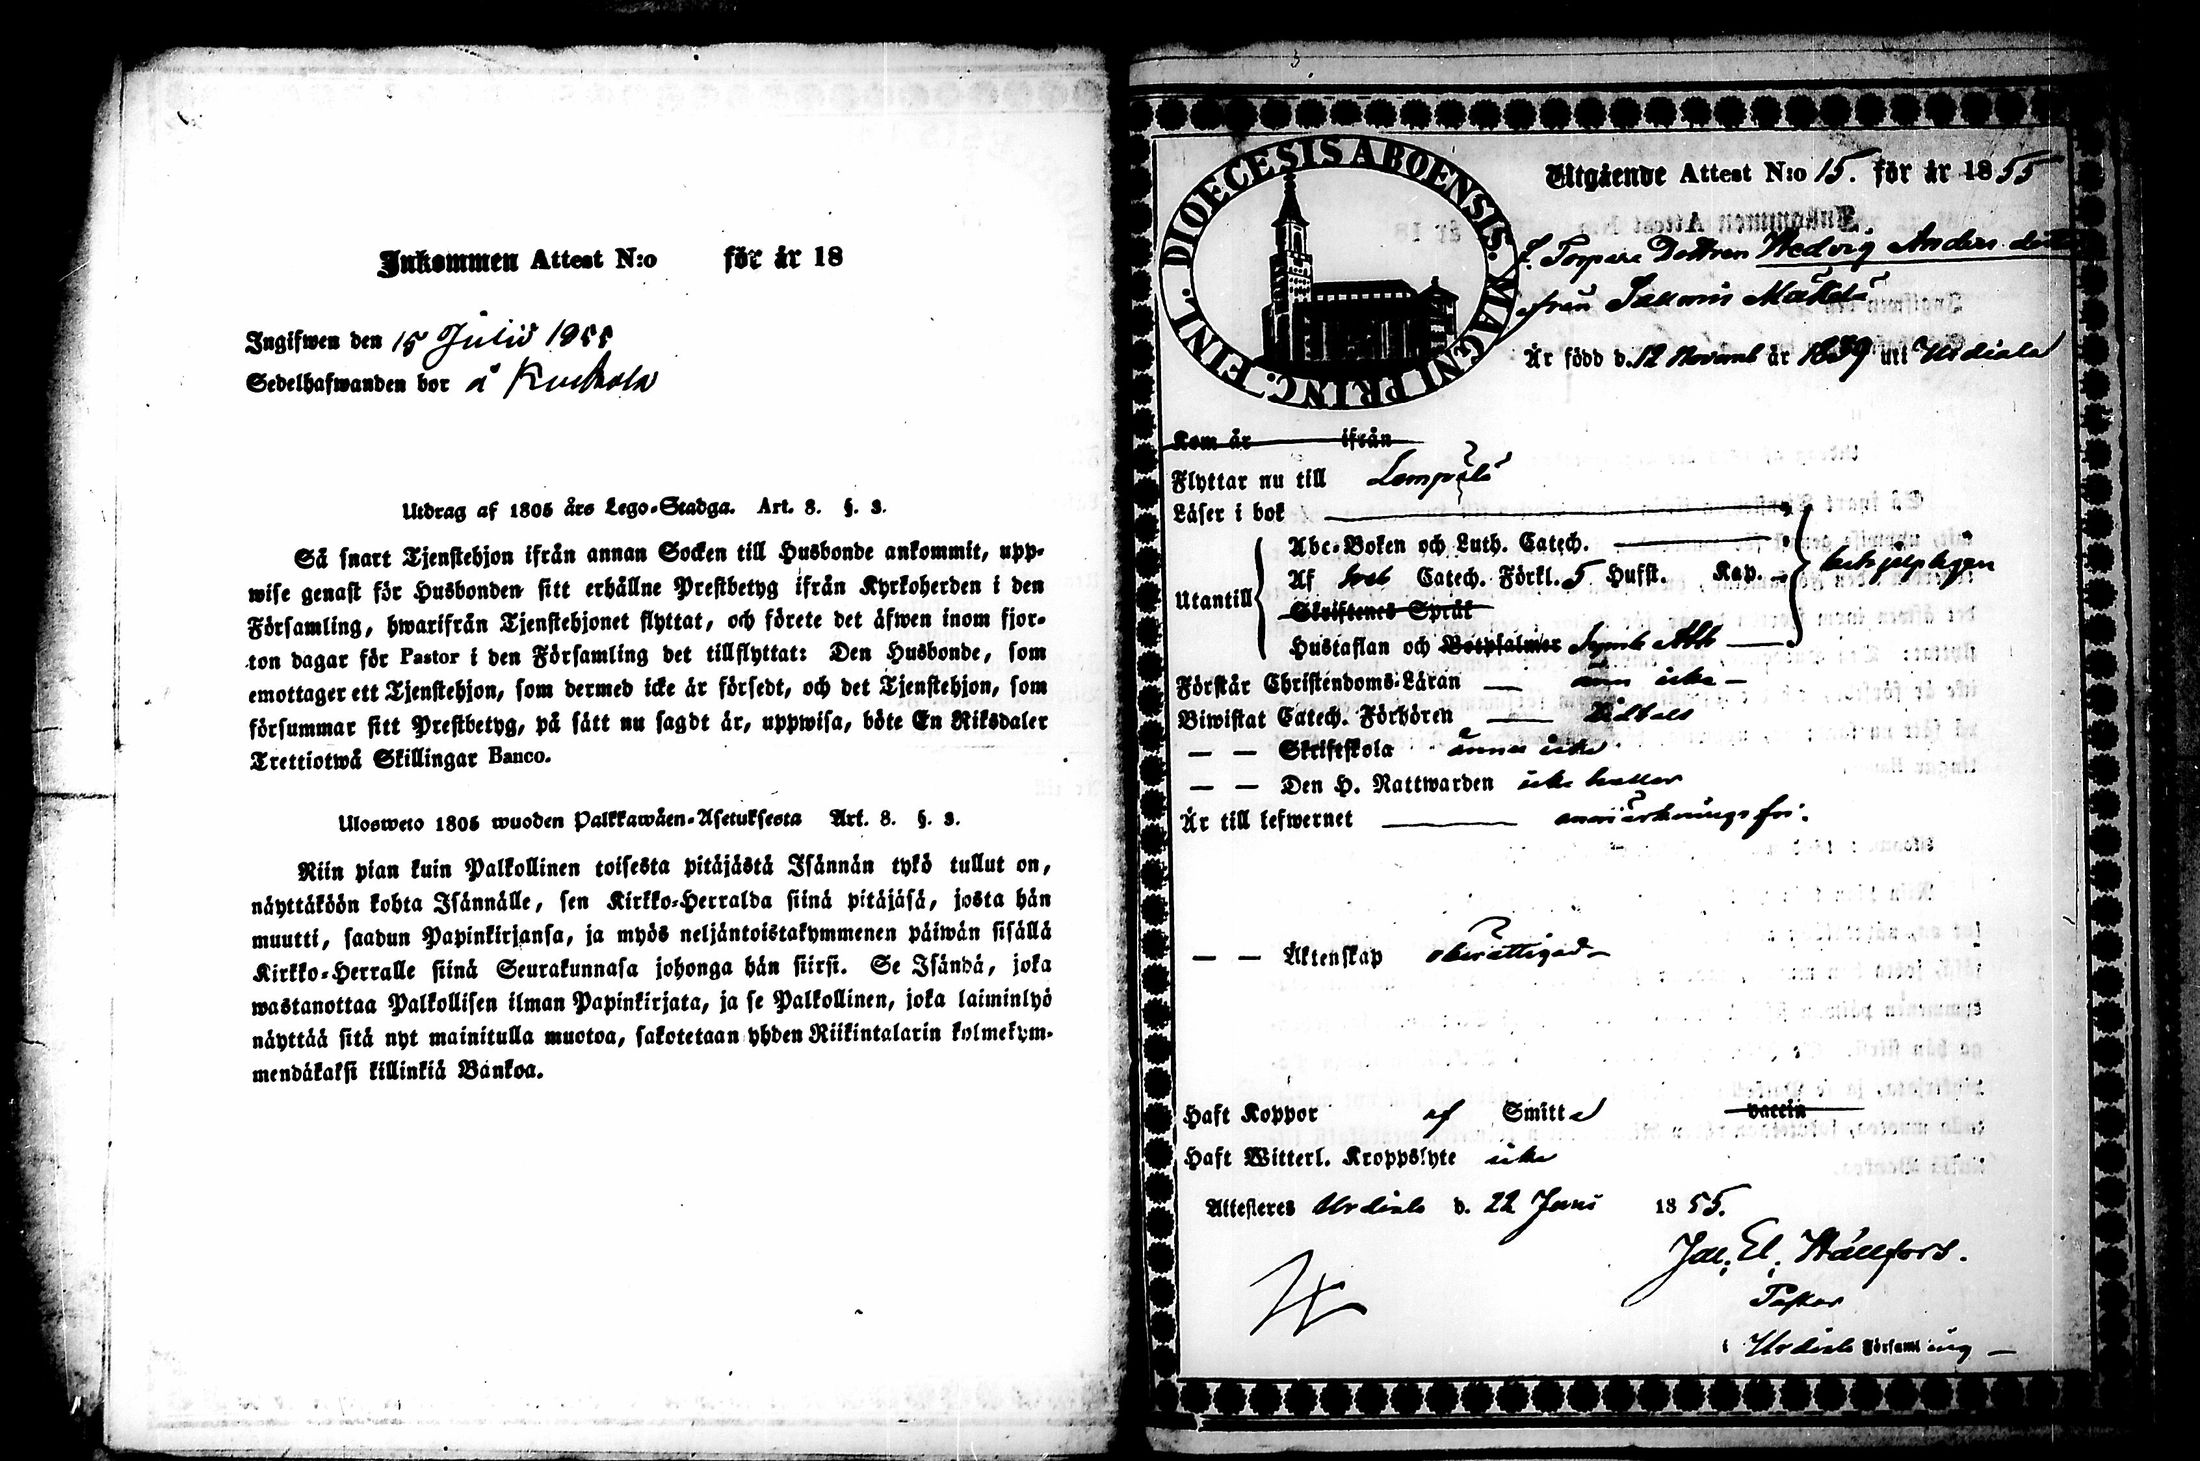 Inkommen Attest N:o för år 18
Ingifwen den 15 Julii 1855
Sedelhafwanden bor å Kuckola
Utdrag af 1805 års Lego-Stadga. Art. 8. §. 3.
Så snart Tjenstehjon ifrån annan Socken till Husbonde ankommit, upp-
wise genast för Husbonden sitt erhållne Prestbetyg ifrån Kyrkoherden i den
Församling, hwarifrån Tjenstehjonet flyttat, och förete det äfwen inom fjor-
ton dagar för Pastor i den Församling det tillflyttat: Den Husbonde, som
emottager ett Tjenstehjon, som dermed icke är försedt, och det Tjenstehjon, som
försummar sitt Prestbetyg, på sätt nu sagdt är, uppwisa, böte En Riksdaler
Trettiotwå Skillingar Banco.
Ulosweto 1805 wuoden Palkkawäen-Asetuksesta Art. 8. §. 3.
Niin pian kuin Palkollinen toisesta pitäjästä Isännän tykö tullut on,
näyttäköön kohta Isännälle, sen Kirkko-Herralda siinä pitäjäsä, josta hän
muutti, saadun Papinkirjansa, ja myös neljäntoistakymmenen päiwän sisällä
Kirkko-Herralle siinä Seurakunnasa johonga hän siirsi. Se Isändä, joka
wastanottaa Palkollisen ilman Papinkirjata, ja se Palkollinen, joka laiminlyö
näyttää sitä nyt mainitulla muotoa, sakotetaan yhden Riikintalarin kolmekym-
mendäkaksi killinkiä Bankoa.
DIOECESIS ABOENSIS. MAGNI PRINC. FINL.
Utgående Attest N:o 15. för år 1855
f. Torpare Dottren Hedvig Anders dotter
från Mäkelä
Är född d. 12 Novemb år 1839 uti Urdiala
Kom år ifrån
Flyttar nu till Lempälä
Läser i bok
Abc-Boken och Luth. Catech.
Af Sveb Catech. Förkl. 5 Hufst. Kap.
Utantill
Skriftenes Språk
Hustaflan och Botpsalmer Symb Ath
Förstår Christendoms-Läran ännu icke
Biwistat Catech. Förhören
— — Skriftskola ännu icke
— — Den H. Nattwarden icke heller
Är till lefwernet anmärkningsfri.
— — Äktenskap oberättigad
Haft Koppor af Smitta vaccin
Haft Witterl. Kroppslyte icke
Attesteres Urdiala d. 22 Juni 1855.
Jac. El. Hällfors.
Pastor
i Urdiala Församling